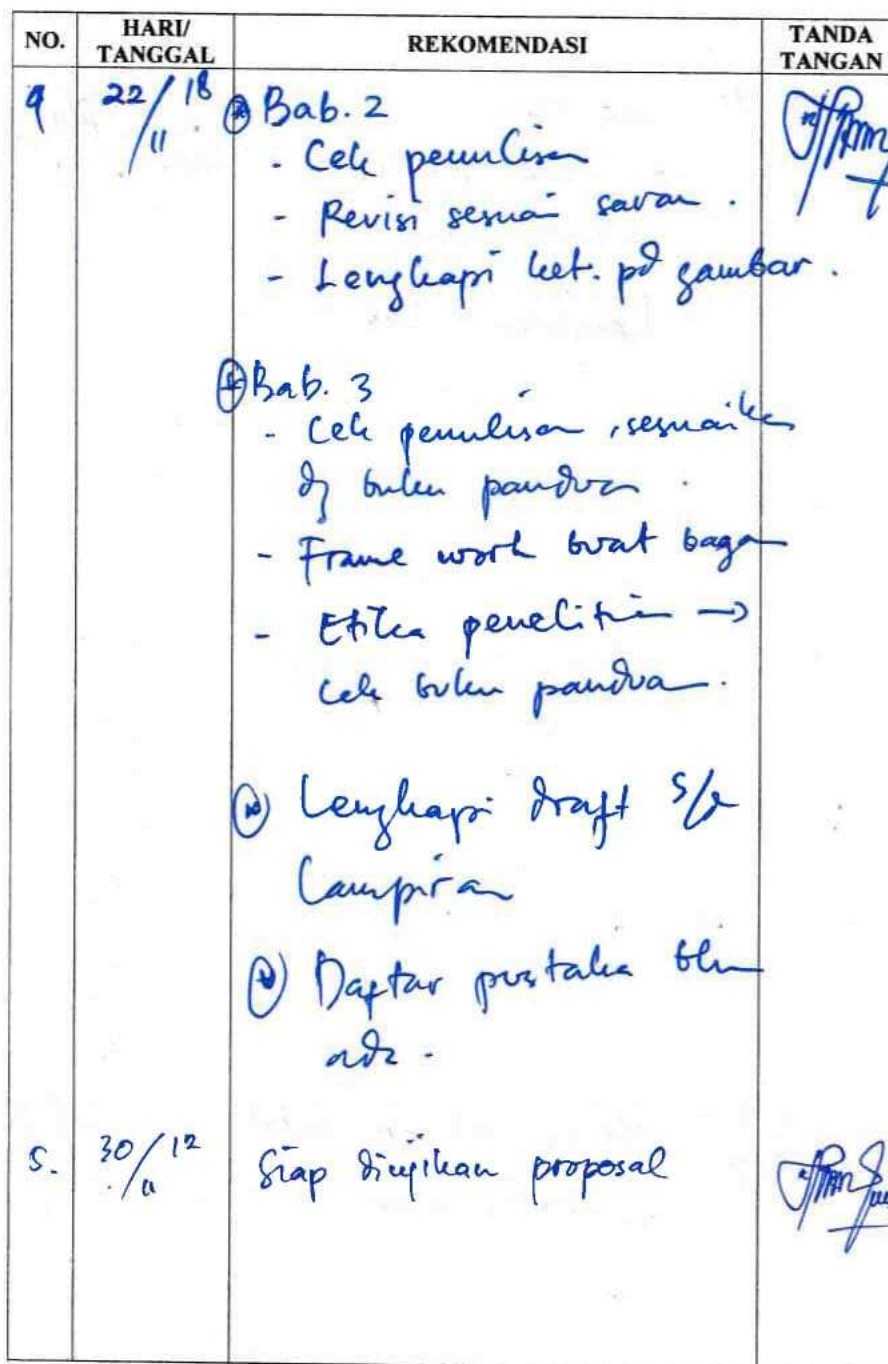 NO. HARI/ TANGGAL REKOMENDASI TANDA TANGAN
9 22/11 18 Bab. 2
- Cek penulisan
- Revisi sesuai saran.
- Lengkapi ket. pd gambar.
Bab. 3
- Cek penulisan, sesuaikan
dg buku panduan.
- Frame work buat bagan
- Etika penelitian →
cek buku panduan.
Lengkapi draft s/d
Lampiran
Daftar pustaka blm
ada.
5. 30/11 12 Siap diujikan proposal